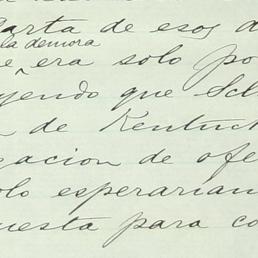 carta de esos d
la demora
e era solo po
yendo que Scl
n de Kentuck
gacion de ofe
olo esperarian
uesta para co